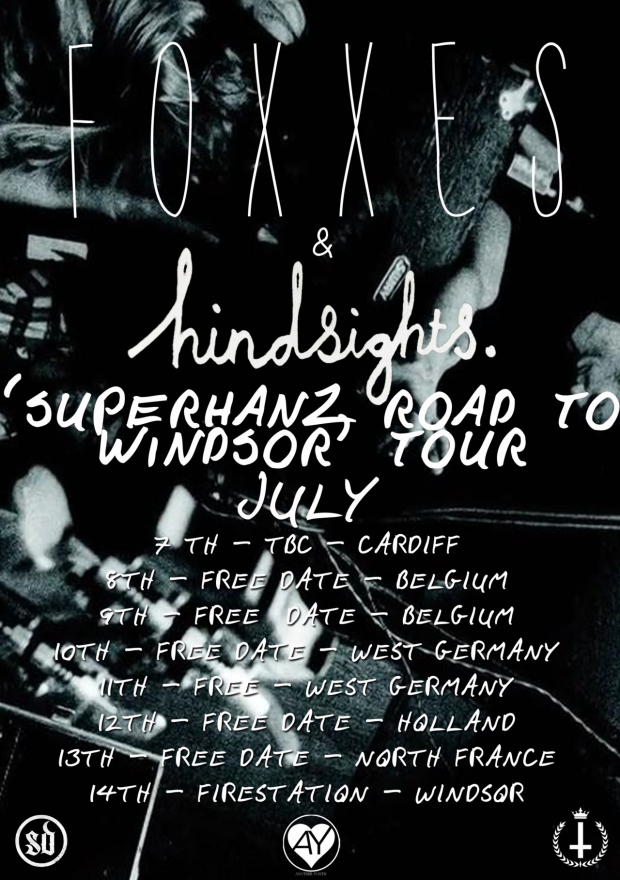 FOXXES
&
hindsights.
'SUPERHANZ, ROAD TO
WINDSOR' TOUR
JULY
7 TH - TBC - CARDIFF
8TH - FREE DATE - BELGIUM
9TH - FREE DATE - BELGIUM
10TH - FREE DATE - WEST GERMANY
11TH - FREE - WEST GERMANY
12TH - FREE DATE - HOLLAND
13TH - FREE DATE - NORTH FRANCE
14TH - FIRESTATION - WINDSOR
sd
AY